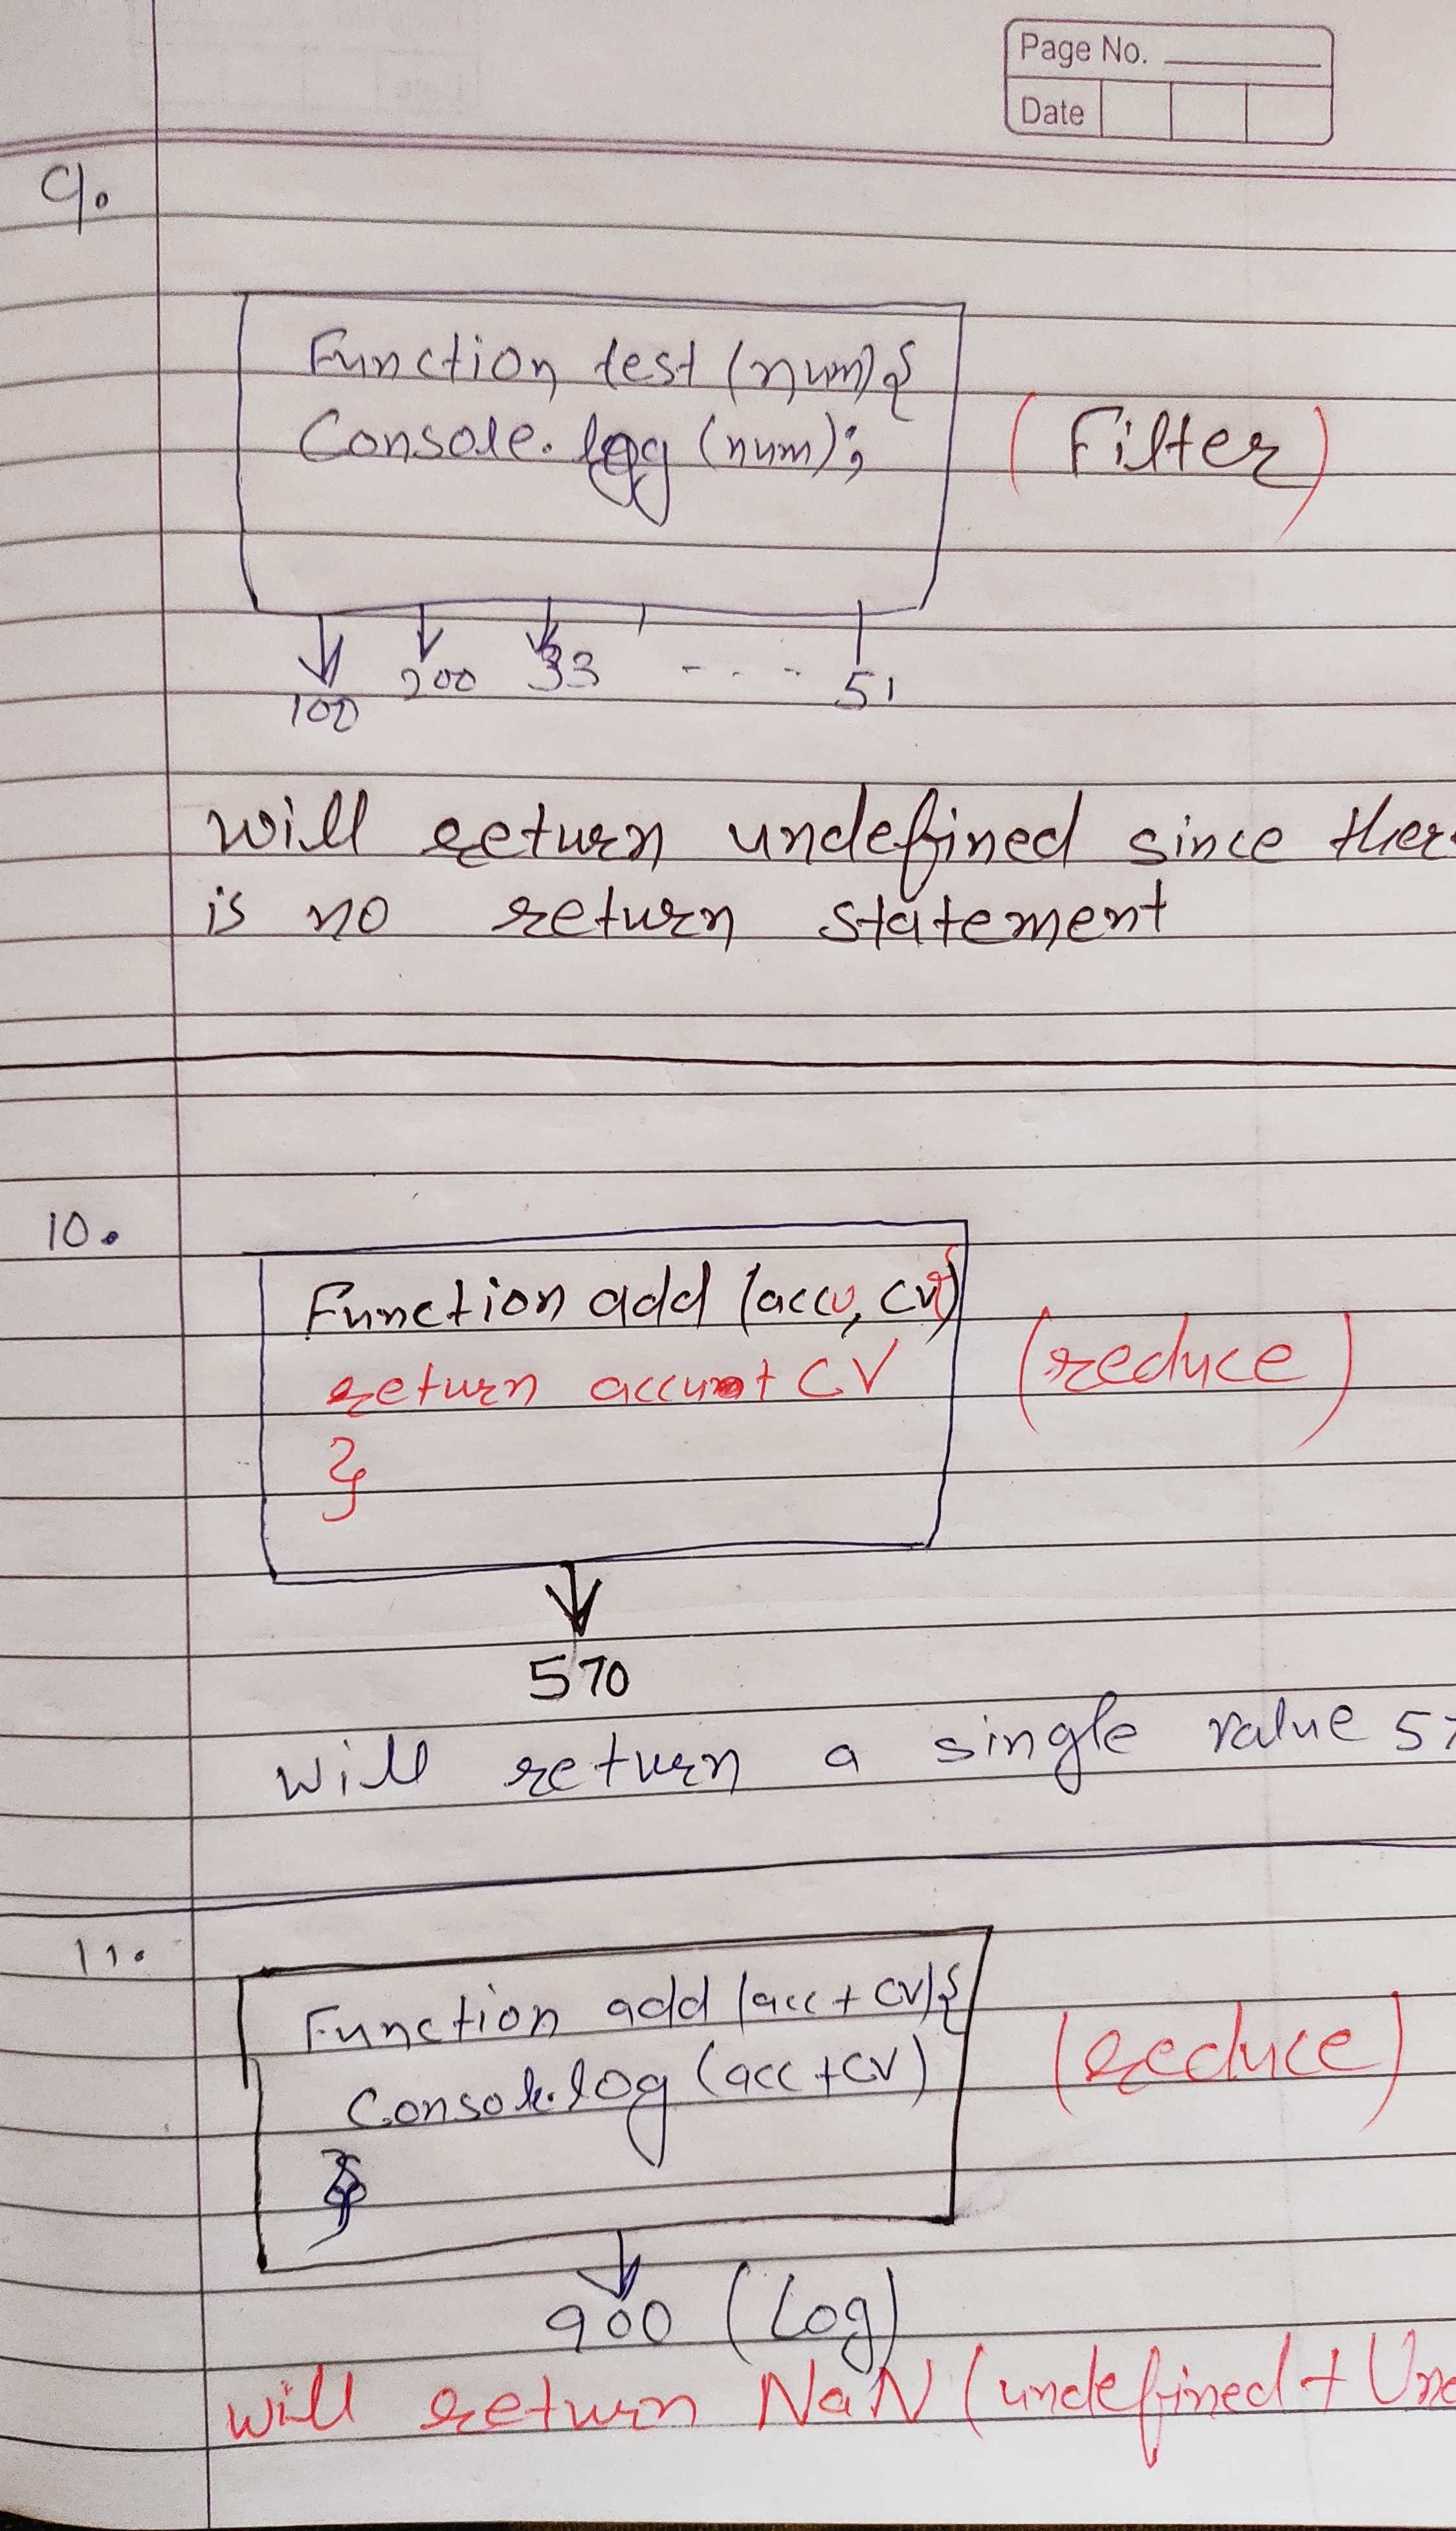 Page No.
Date
9.
Function test (num){
Console.log (num);
(Filter)
100 200 33 - - - - 51
will return undefined since ther
is no return statement
10.
Function add (accu, cv){
return accu + CV
}
(reduce)
570
will return a single value 57
11.
Function add (acc + cv){
Console.log (acc + cv)
}
(reduce)
900 (Log)
will return NaN (undefined + Une